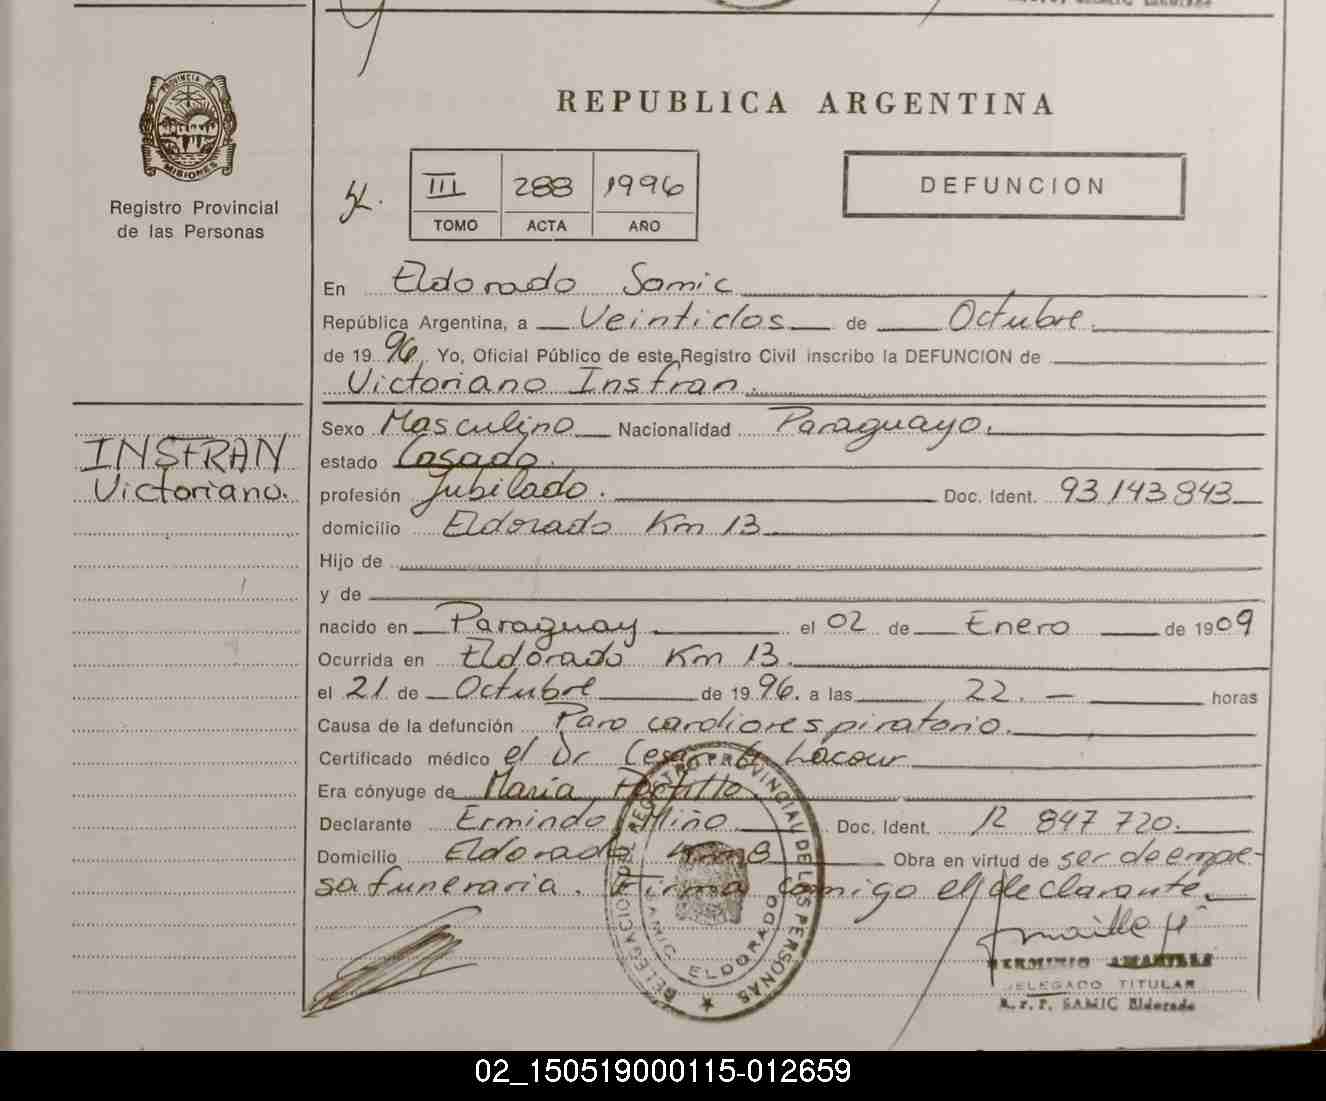 PROVINCIA
MISIONES
Registro Provincial
de las Personas
INSFRAN
Victoriano.
REPUBLICA ARGENTINA
III 288 1996
TOMO ACTA AÑO
DEFUNCION
En Eldorado Samic
República Argentina, a Veintidos de Octubre.
de 1996. Yo, Oficial Público de este Registro Civil inscribo la DEFUNCION de
Victoriano Insfran.
Sexo Masculino Nacionalidad Paraguayo.
estado Casado.
profesión Jubilado. Doc. Ident. 93.143.843
domicilio Eldorado Km 13
Hijo de
y de
nacido en Paraguay el 02 de Enero de 1909
Ocurrida en Eldorado Km 13.
el 21 de Octubre de 1996. a las 22. — horas
Causa de la defunción Paro cardiorespiratorio.
Certificado médico el Dr Cesar Lacour
Era cónyuge de María Portillo.
Declarante Ermindo Miño Doc. Ident. 12 847 720.
Domicilio Eldorado Km 8 Obra en virtud de ser de empre-
sa funeraria. Firma conmigo el declarante.
DELEGACION DEL REGISTRO PROVINCIAL DE LAS PERSONAS
SAMIC ELDORADO
HERMINIO AMARILLA
DELEGADO TITULAR
R. P. P. SAMIC Eldorado
02_150519000115-012659